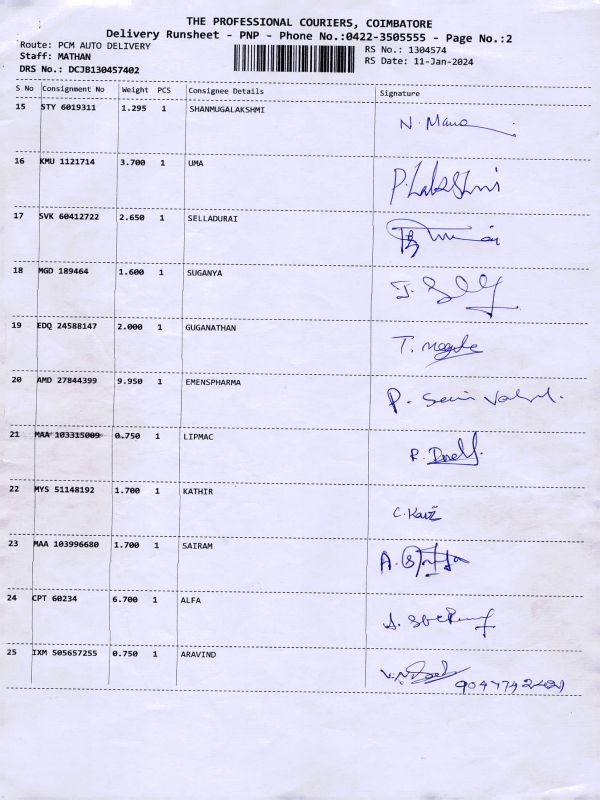 THE PROFESSIONAL COURIERS, COIMBATORE
Delivery Runsheet - PNP - Phone No.:0422-3505555 - Page No.:2
Route: PCM AUTO DELIVERY
RS No.: 1304574
Staff: MATHAN
RS Date: 11-Jan-2024
DRS No.: DCJB130457402
S No Consignment No Weight PCS Consignee Details Signature
15 STY 6019311 1.295 1 SHANMUGALAKSHMI
N. Mana
16 KMU 1121714 3.700 1 UMA
P. Lakshmi
17 SVK 60412722 2.650 1 SELLADURAI
18 MGD 189464 1.600 1 SUGANYA
19 EDQ 24588147 2.000 1 GUGANATHAN
20 AMD 27844399 9.950 1 EMENSPHARMA
21 MAA 103315009 0.750 1 LIPMAC
22 MYS 51148192 1.700 1 KATHIR
23 MAA 103996680 1.700 1 SAIRAM
24 CPT 60234 6.700 1 ALFA
25 IXM 505657255 0.750 1 ARAVIND